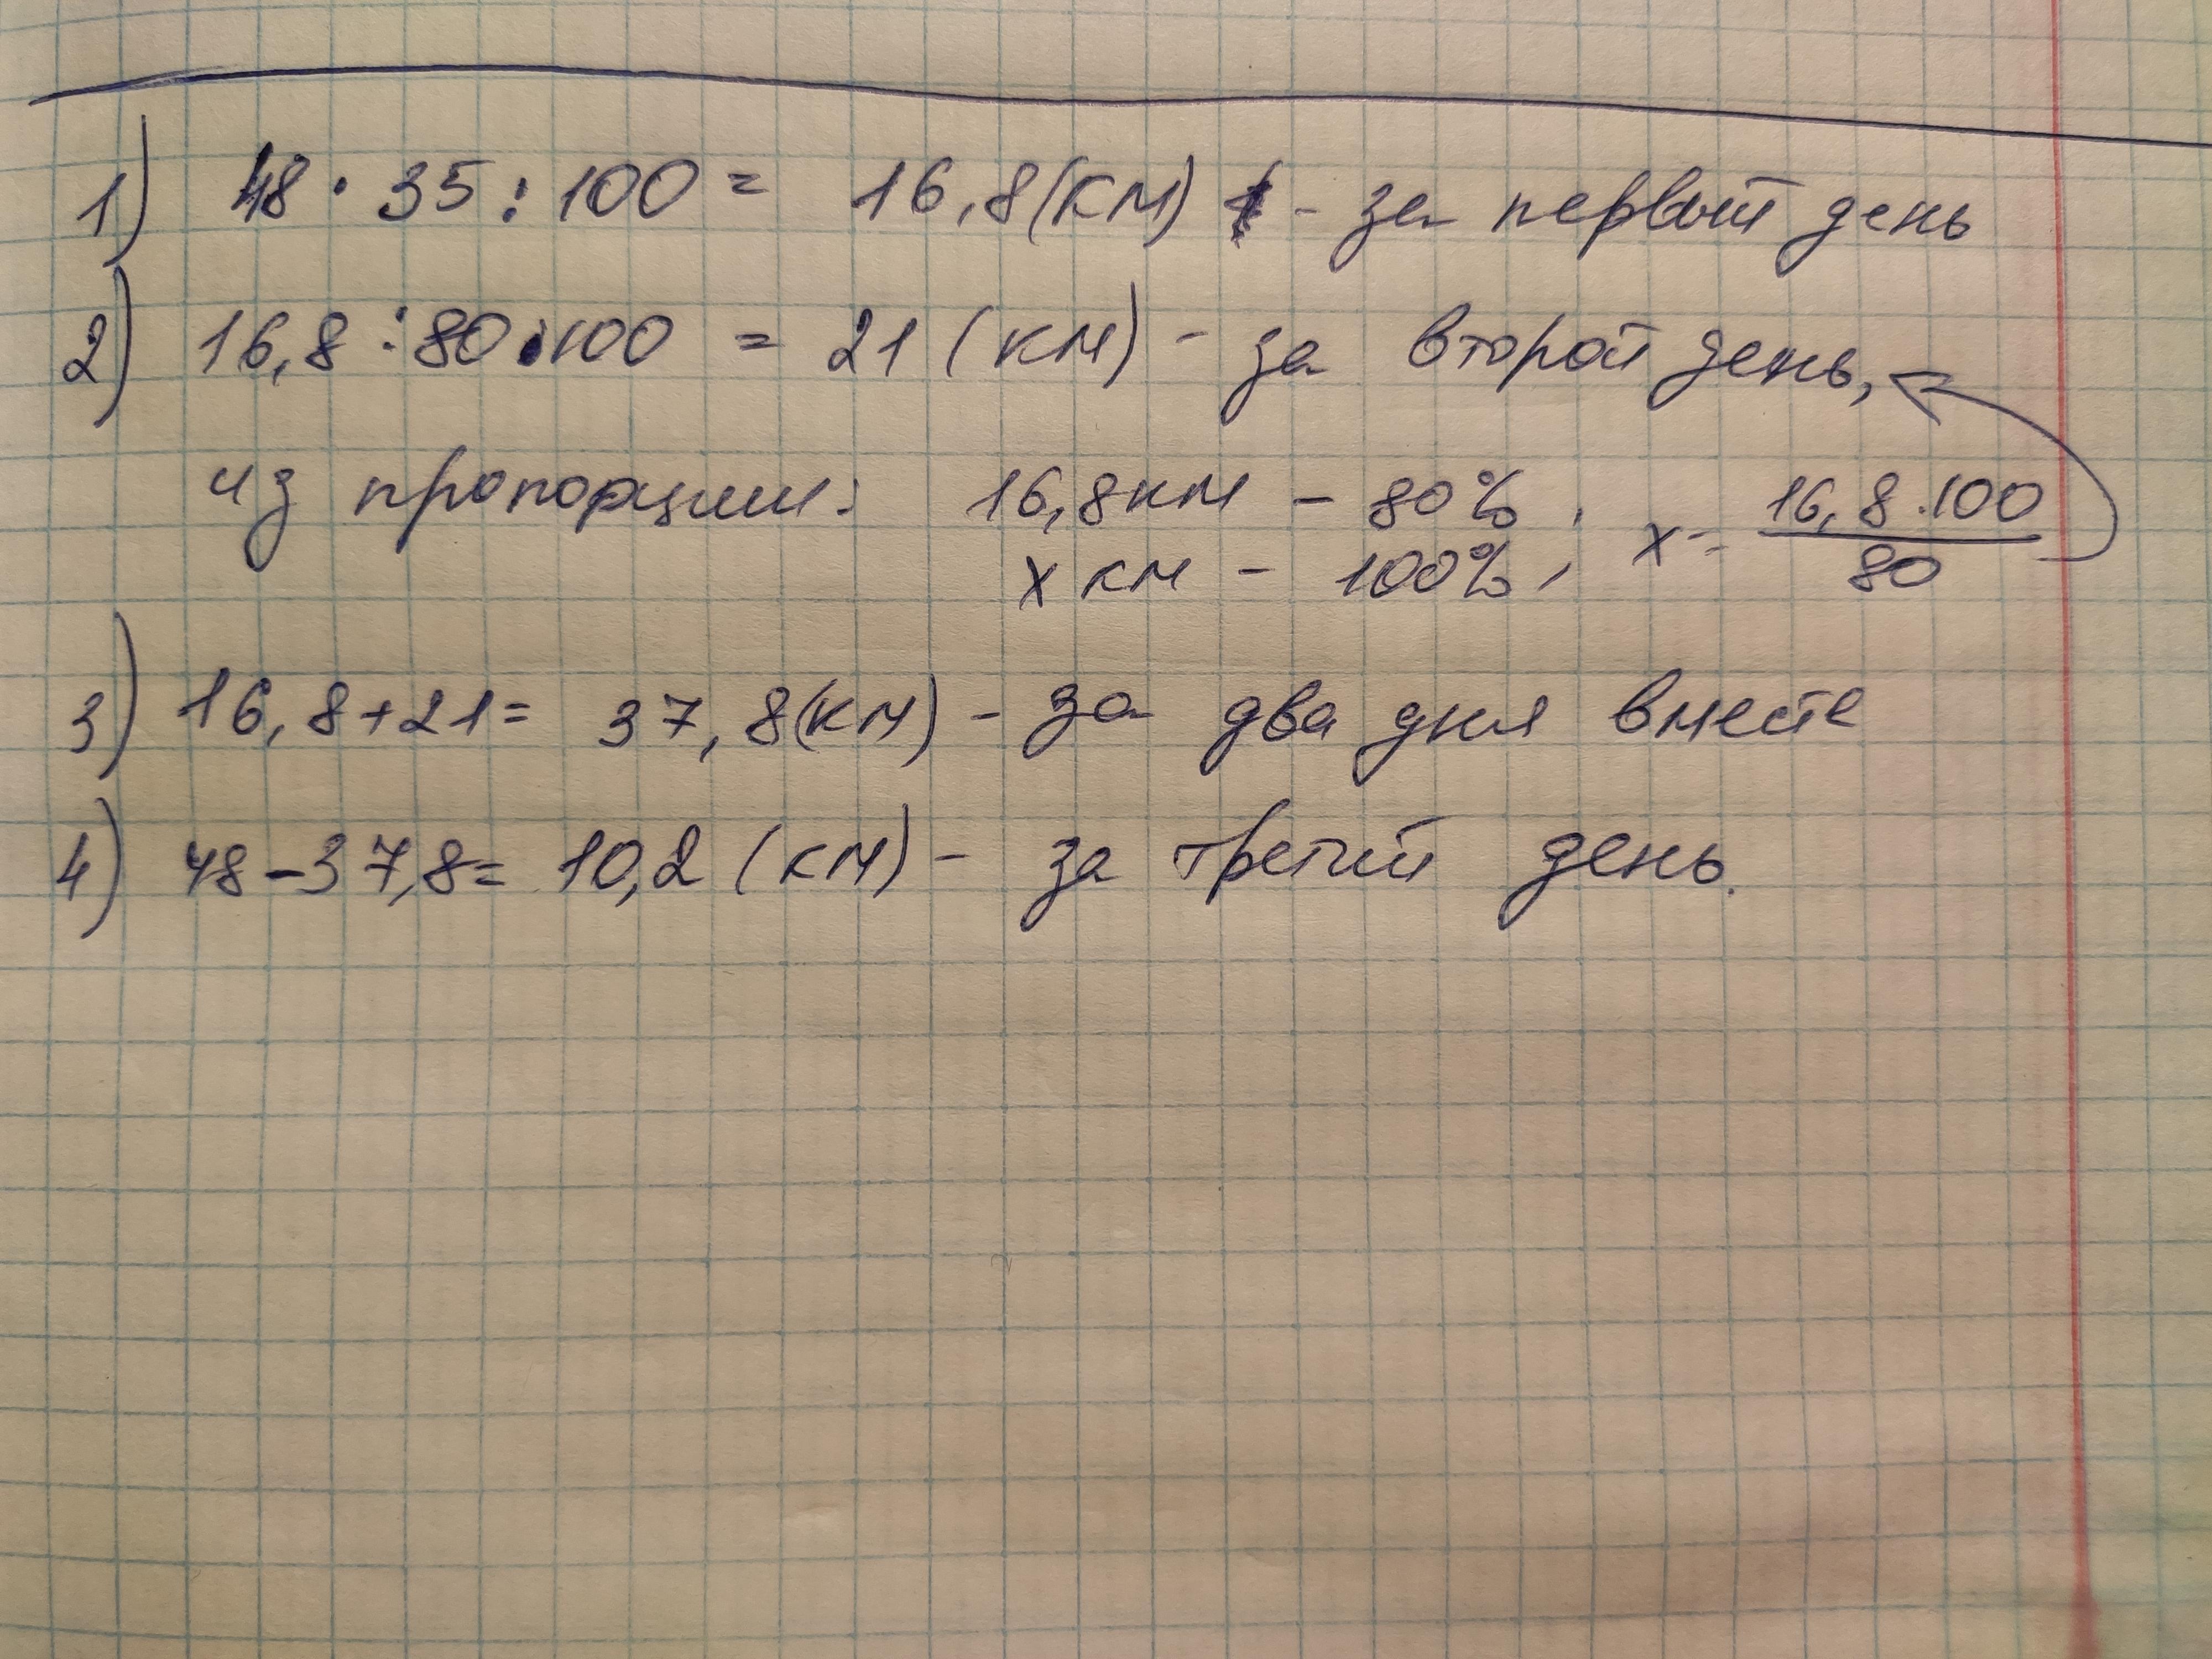 1) 48 · 35 : 100 = 16,8 (км) - за первый день
2) 16,8 : 80 · 100 = 21 (км) - за второй день,
из пропорции: 16,8 км - 80% ; x = 16,8 · 100 / 80
x км - 100%
3) 16,8 + 21 = 37,8 (км) - за два дня вместе
4) 48 - 37,8 = 10,2 (км) - за третий день.